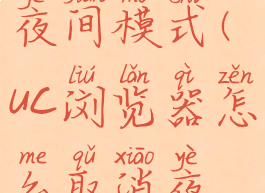 yè jiān mó shì
夜间模式(
liú lǎn qì zěn
UC浏览器怎
me qǔ xiāo yè
么取消夜